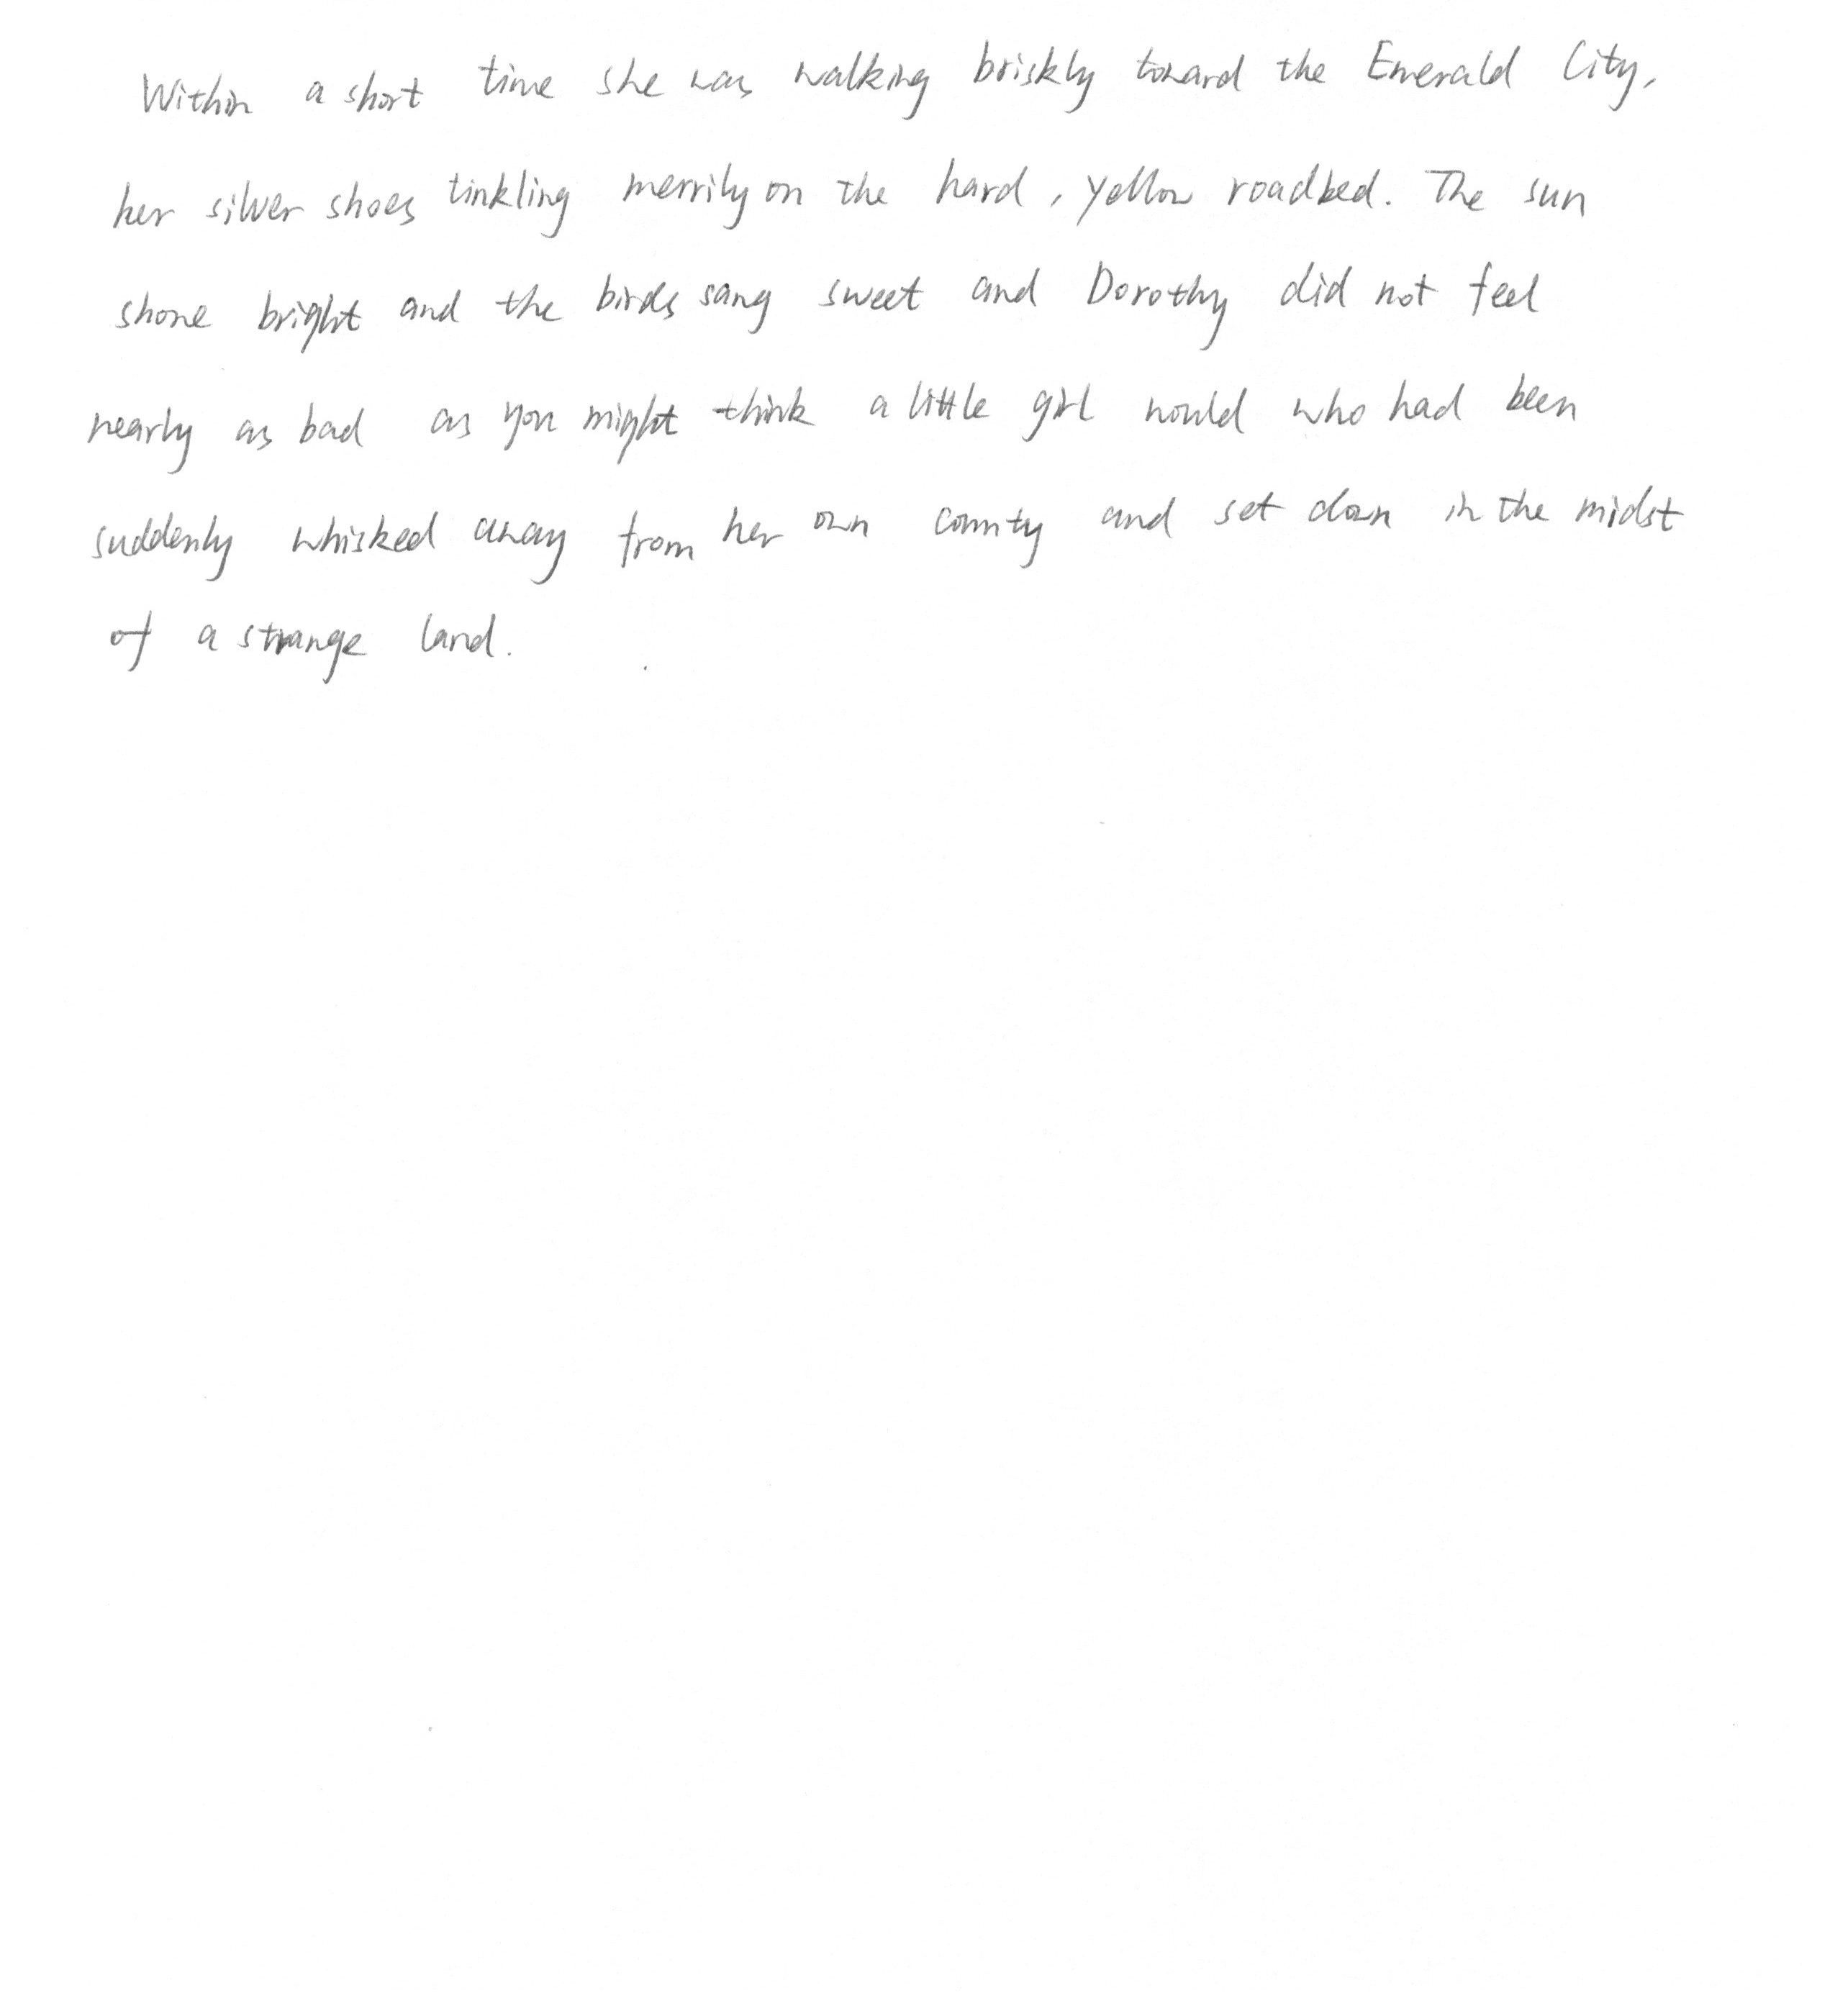 Within a short time she was walking briskly toward the Emerald City,
her silver shoes tinkling merrily on the hard, yellow roadbed. The sun
shone bright and the birds sang sweet and Dorothy did not feel
nearly as bad as you might think a little girl would who had been
suddenly whisked away from her own county and set down in the midst
of a strange land.